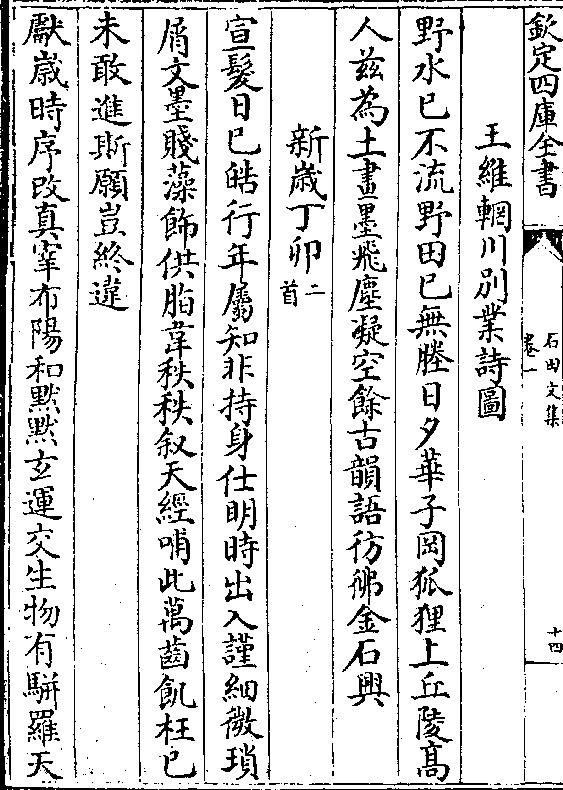 欽定四庫全書
石田文集
卷一
十四
王維輞川別業詩圖
野水已不流野田已無塍日夕華子岡狐狸上丘陵高
人兹為土畫墨飛塵凝空餘古韻語彷彿金石興
新歳丁卯二首
宣髮日已皓行年屬知非持身仕明時出入謹細微瑣
屑文墨賤藻飾供脂韋秩秩叙天經哨此萬齒飢枉已
未敢進斯願豈終違
獻歳時序改真宰布陽和黙黙玄運交生物有駢羅天